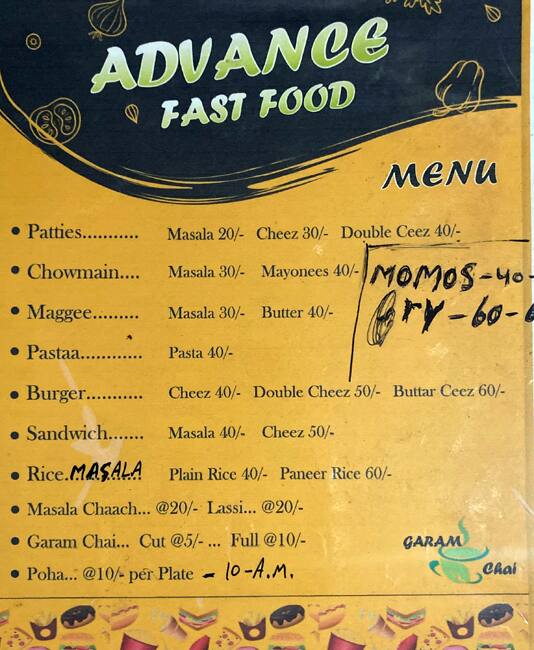 ADVANCE
FAST FOOD
MENU
• Patties........... Masala 20/- Cheez 30/- Double Ceez 40/-
• Chowmain.... Masala 30/- Mayonees 40/-
MOMOS-40-
• Maggee......... Masala 30/- Butter 40/-
ry-60-
• Pastaa............ Pasta 40/-
• Burger........... Cheez 40/- Double Cheez 50/- Buttar Ceez 60/-
• Sandwich....... Masala 40/- Cheez 50/-
• Rice.MASALA Plain Rice 40/- Paneer Rice 60/-
• Masala Chaach... @20/- Lassi... @20/-
• Garam Chai... Cut @5/- ... Full @10/-
GARAM
Chai
• Poha... @10/- per Plate - 10-A.M.